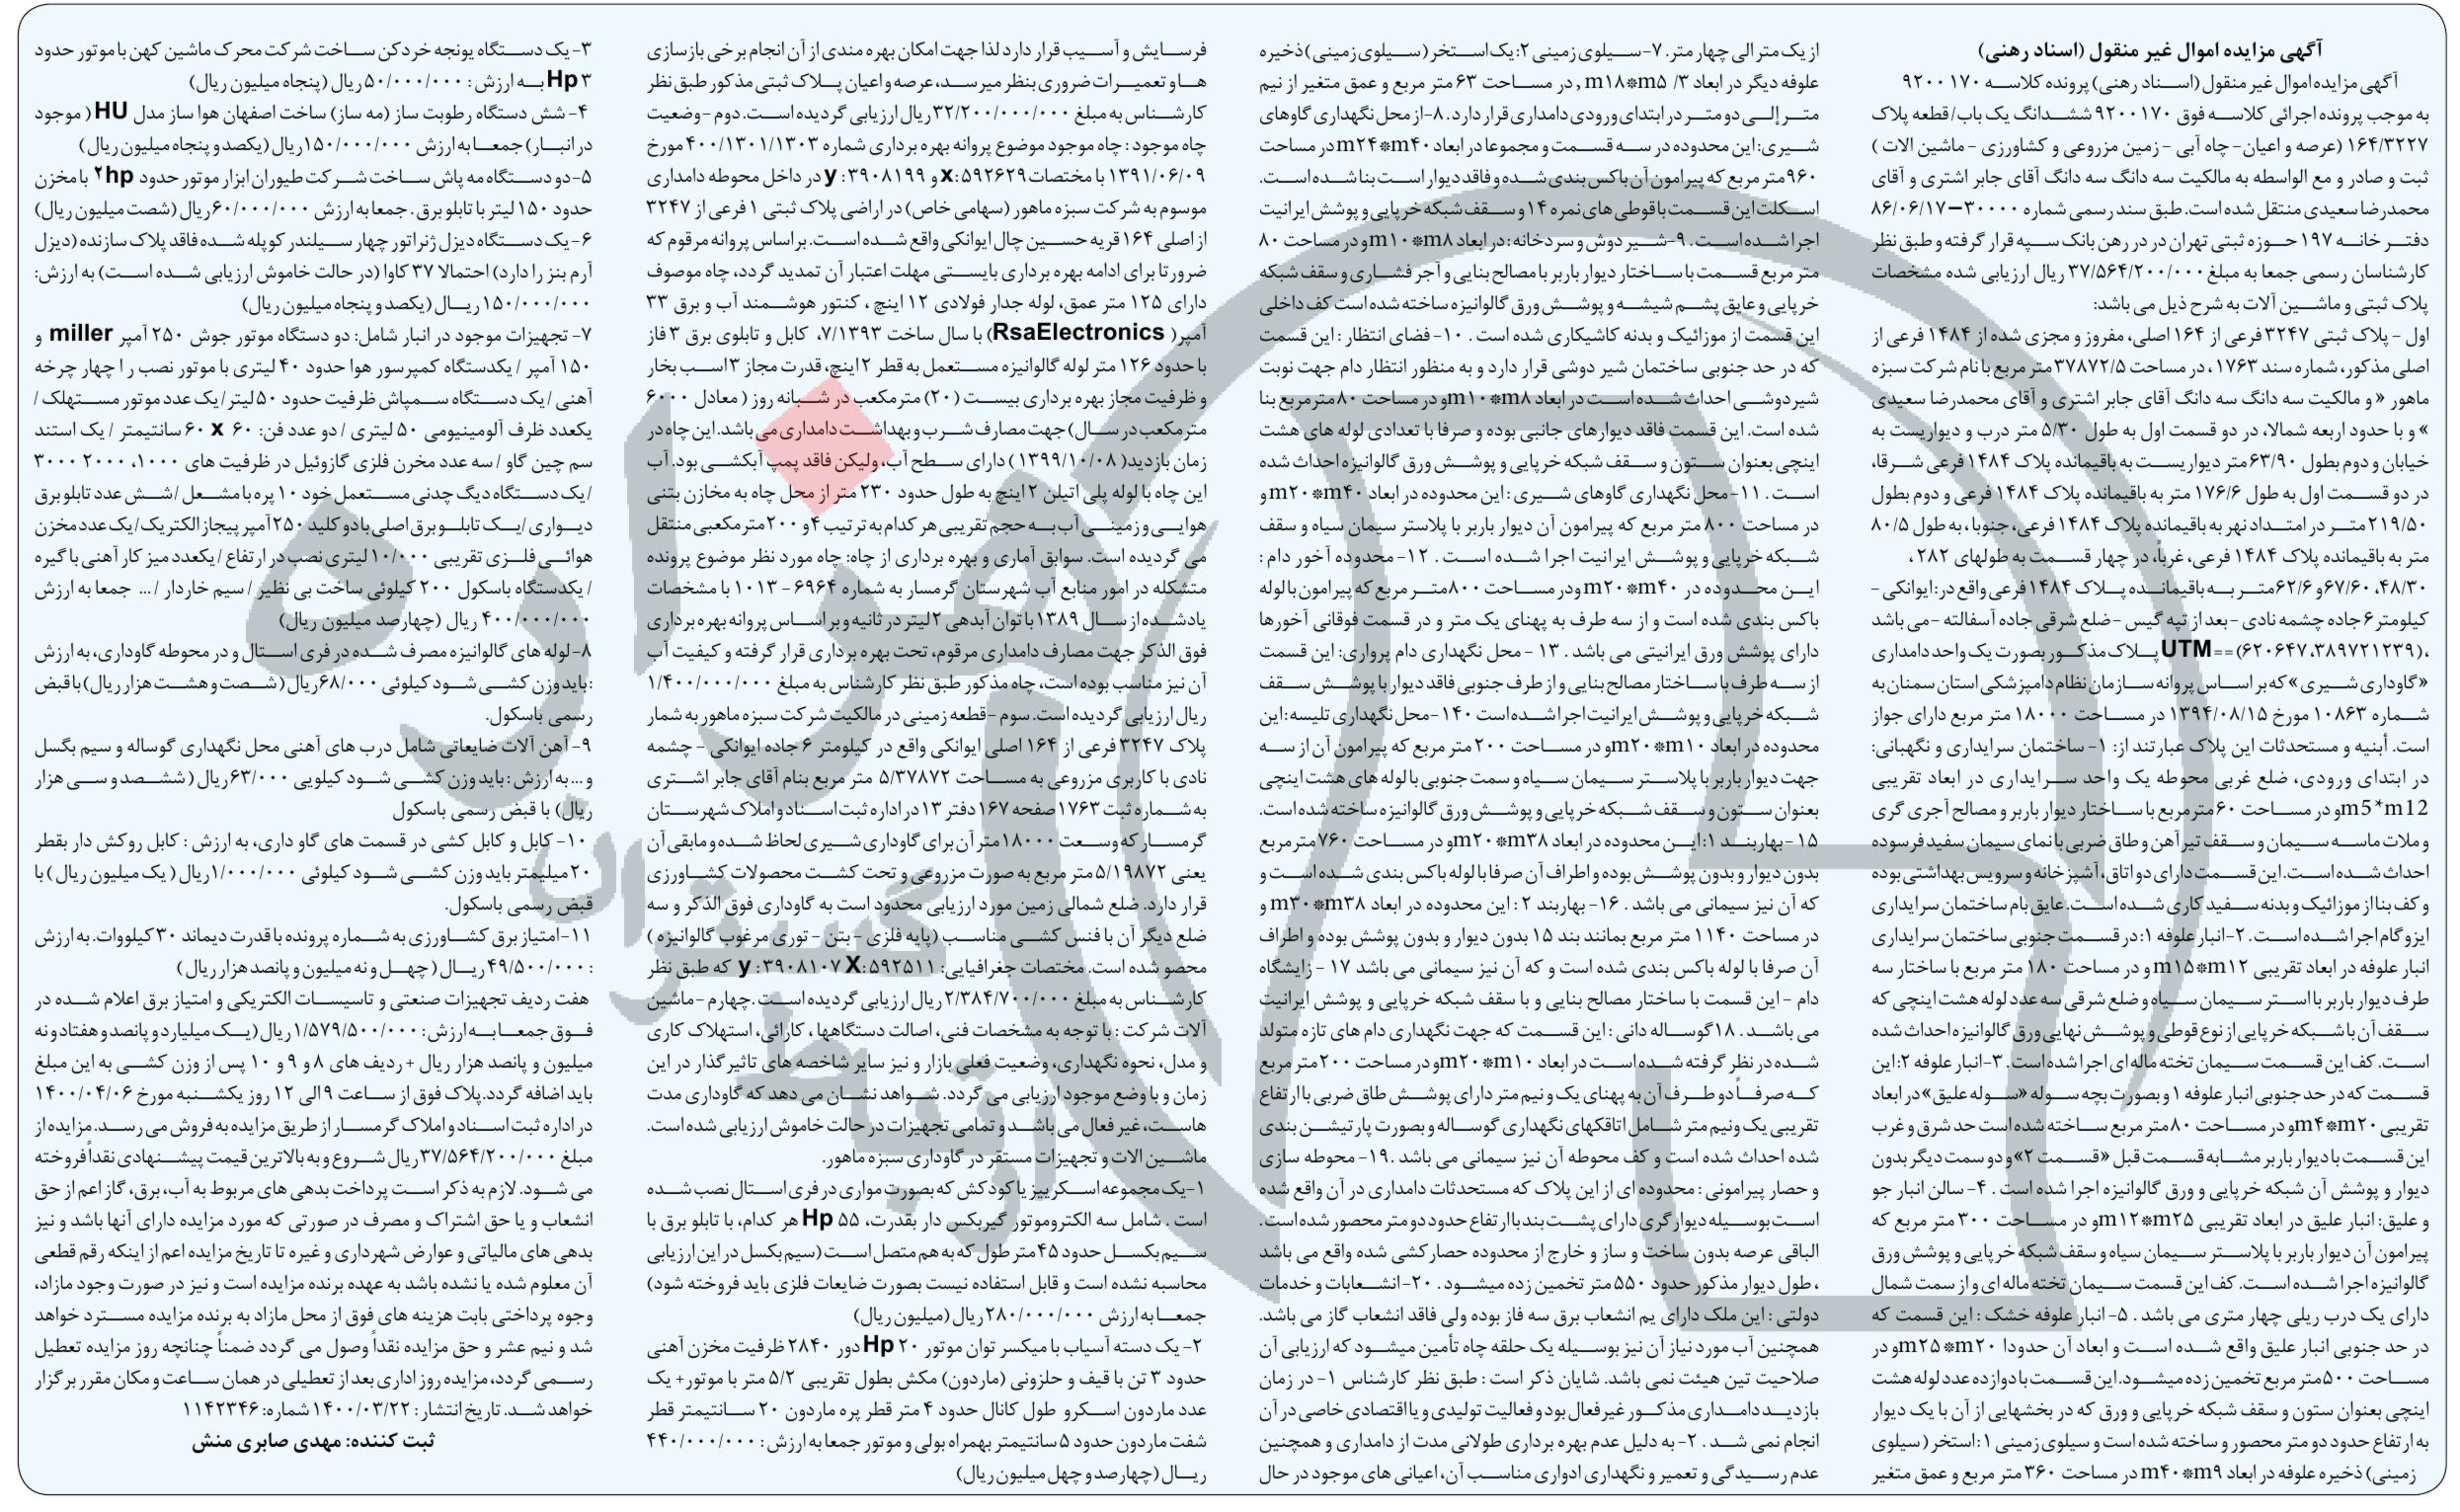 آگهی مزایده اموال غیر منقول (اسناد رهنی)
آگهی مزایده اموال غیر منقول (اسناد رهنی) پرونده کلاسه ۹۲۰۰۱۷۰
به موجب پرونده اجرائی کلاسه فوق ۹۲۰۰۱۷۰ ششدانگ یک باب/قطعه پلاک
۱۶۴/۳۲۲۷ (عرصه و اعیان- چاه آبی - زمین مزروعی و کشاورزی - ماشین الات )
ثبت و صادر و مع الواسطه به مالکیت سه دانگ سه دانگ آقای جابر اشتری و آقای
محمدرضا سعیدی منتقل شده است. طبق سند رسمی شماره ۳۰۰۰۰–۸۶/۰۶/۱۷
دفتر خانه ۱۹۷ حوزه ثبتی تهران در در رهن بانک سپه قرار گرفته و طبق نظر
کارشناسان رسمی جمعا به مبلغ ۳۷/۵۶۴/۲۰۰/۰۰۰ ریال ارزیابی شده مشخصات
پلاک ثبتی و ماشین آلات به شرح ذیل می باشد:
اول - پلاک ثبتی ۳۲۴۷ فرعی از ۱۶۴ اصلی، مفروز و مجزی شده از ۱۴۸۴ فرعی از
اصلی مذکور، شماره سند ۱۷۶۳ ، در مساحت ۳۷۸۷۲/۵ متر مربع با نام شرکت سبزه
ماهور «و مالکیت سه دانگ سه دانگ آقای جابر اشتری و آقای محمدرضا سعیدی
» و با حدود اربعه شمالا، در دو قسمت اول به طول ۵/۳۰ متر درب و دیواریست به
خیابان و دوم بطول ۶۳/۹۰ متر دیواریست به باقیمانده پلاک ۱۴۸۴ فرعی شرقا،
در دو قسمت اول به طول ۱۷۶/۶ متر به باقیمانده پلاک ۱۴۸۴ فرعی و دوم بطول
۲۱۹/۵۰ متر در امتداد نهر به باقیمانده پلاک ۱۴۸۴ فرعی، جنوبا، به طول ۸۰/۵
متر به باقیمانده پلاک ۱۴۸۴ فرعی، غرباً، در چهار قسمت به طولهای ۲۸۲ ،
۴۸/۳۰، ۶۷/۶۰ و ۶۲/۶ متر به باقیمانده پلاک ۱۴۸۴ فرعی واقع در: ایوانکی -
کیلومتر ۶ جاده چشمه نادی - بعد از تپه گیس - ضلع شرقی جاده آسفالته - می باشد
،(۶۲۰۶۴۷،۳۸۹۷۲۱۲۳۹)==UTM پلاک مذکور بصورت یک واحد دامداری
«گاوداری شیری» که بر اساس پروانه سازمان نظام دامپزشکی استان سمنان به
شماره ۱۰۸۶۳ مورخ ۱۳۹۴/۰۸/۱۵ در مساحت ۱۸۰۰۰ متر مربع دارای جواز
است. أبنیه و مستحدثات این پلاک عبارتند از: ۱- ساختمان سرایداری و نگهبانی:
در ابتدای ورودی، ضلع غربی محوطه یک واحد سرایداری در ابعاد تقریبی
m5*m12و در مساحت ۶۰ متر مربع با ساختار دیوار باربر و مصالح آجری گری
و ملات ماسه سیمان و سقف تیرآهن و طاق ضربی با نمای سیمان سفید فرسوده
احداث شده است. این قسمت دارای دو اتاق، آشپزخانه و سرویس بهداشتی بوده
و کف بنا از موزائیک و بدنه سفید کاری شده است. عایق بام ساختمان سرایداری
ایزوگام اجرا شده است. ۲- انبار علوفه ۱: در قسمت جنوبی ساختمان سرایداری
انبار علوفه در ابعاد تقریبی m۱۵*m۱۲و در مساحت ۱۸۰ متر مربع با ساختار سه
طرف دیوار باربر با استر سیمان سیاه و ضلع شرقی سه عدد لوله هشت اینچی که
سقف آن با شبکه خرپایی از نوع قوطی و پوشش نهایی ورق گالوانیزه احداث شده
است. کف این قسمت سیمان تخته ماله ای اجرا شده است. ۳- انبار علوفه ۲: این
قسمت که در حد جنوبی انبار علوفه ۱ و بصورت بچه سوله «سوله علیق» در ابعاد
تقریبی m۴*m۲۰و در مساحت ۸۰ متر مربع ساخته شده است حد شرق و غرب
این قسمت با دیوار باربر مشابه قسمت قبل «قسمت ۲» و دو سمت دیگر بدون
دیوار و پوشش آن شبکه خرپایی و ورق گالوانیزه اجرا شده است . ۴- سالن انبار جو
و علیق: انبار علیق در ابعاد تقریبی m۱۲*m۲۵و در مساحت ۳۰۰ متر مربع که
پیرامون آن دیوار باربر با پلاستر سیمان سیاه و سقف شبکه خرپایی و پوشش ورق
گالوانیزه اجرا شده است. کف این قسمت سیمان تخته ماله ای و از سمت شمال
دارای یک درب ریلی چهار متری می باشد . ۵- انبار علوفه خشک : این قسمت که
در حد جنوبی انبار علیق واقع شده است و ابعاد آن حدودا m۲۵*m۲۰و در
مساحت ۵۰۰ متر مربع تخمین زده میشود. این قسمت با دوازده عدد لوله هشت
اینچی بعنوان ستون و سقف شبکه خرپایی و ورق که در بخشهایی از آن با یک دیوار
به ارتفاع حدود دو متر محصور و ساخته شده است و سیلوی زمینی ۱: استخر (سیلوی
زمینی) ذخیره علوفه در ابعاد m۴۰*m۹ در مساحت ۳۶۰ متر مربع و عمق متغیر
از یک متر الی چهار متر. ۷- سیلوی زمینی ۲: یک استخر (سیلوی زمینی) ذخیره
علوفه دیگر در ابعاد ۳/ m۱۸*m۵ , در مساحت ۶۳ متر مربع و عمق متغیر از نیم
متر إلی دو متر در ابتدای ورودی دامداری قرار دارد. ۸- از محل نگهداری گاوهای
شیری: این محدوده در سه قسمت و مجموعا در ابعاد m۲۴*m۴۰ در مساحت
۹۶۰ متر مربع که پیرامون آن باکس بندی شده و فاقد دیوار است بنا شده است.
اسکلت این قسمت با قوطی های نمره ۱۴ و سقف شبکه خرپایی و پوشش ایرانیت
اجرا شده است. ۹- شیر دوش و سردخانه: در ابعاد m۱۰*m۸و در مساحت ۸۰
متر مربع قسمت با ساختار دیوار باربر با مصالح بنایی و آجر فشاری و سقف شبکه
خرپایی و عایق پشم شیشه و پوشش ورق گالوانیزه ساخته شده است کف داخلی
این قسمت از موزائیک و بدنه کاشیکاری شده است . ۱۰- فضای انتظار : این قسمت
که در حد جنوبی ساختمان شیر دوشی قرار دارد و به منظور انتظار دام جهت نوبت
شیردوشی احداث شده است در ابعاد m۱۰*m۸و در مساحت ۸۰ متر مربع بنا
شده است. این قسمت فاقد دیوارهای جانبی بوده و صرفا با تعدادی لوله های هشت
اینچی بعنوان ستون و سقف شبکه خرپایی و پوشش ورق گالوانیزه احداث شده
است . ۱۱- محل نگهداری گاوهای شیری : این محدوده در ابعاد m۲۰*m۴۰و
در مساحت ۸۰۰ متر مربع که پیرامون آن دیوار باربر با پلاستر سیمان سیاه و سقف
شبکه خرپایی و پوشش ایرانیت اجرا شده است . ۱۲- محدوده آخور دام :
این محدوده در m۲۰*m۴۰ ودر مساحت ۸۰۰ متر مربع که پیرامون با لوله
باکس بندی شده است و از سه طرف به پهنای یک متر و در قسمت فوقانی آخورها
دارای پوشش ورق ایرانیتی می باشد . ۱۳ - محل نگهداری دام پرواری: این قسمت
از سه طرف با ساختار مصالح بنایی و از طرف جنوبی فاقد دیوار با پوشش سقف
شبکه خرپایی و پوشش ایرانیت اجرا شده است ۱۴۰- محل نگهداری تلیسه: این
محدوده در ابعاد m۲۰*m۱۰و در مساحت ۲۰۰ متر مربع که پیرامون آن از سه
جهت دیوار باربر با پلاستر سیمان سیاه و سمت جنوبی با لوله های هشت اینچی
بعنوان ستون و سقف شبکه خرپایی و پوشش ورق گالوانیزه ساخته شده است.
۱۵- بهاربند ۱: این محدوده در ابعاد m۲۰*m۳۸و در مساحت ۷۶۰ متر مربع
بدون دیوار و بدون پوشش بوده و اطراف آن صرفا با لوله باکس بندی شده است و
که آن نیز سیمانی می باشد . ۱۶- بهاربند ۲ : این محدوده در ابعاد m۳۰*m۳۸ و
در مساحت ۱۱۴۰ متر مربع بمانند بند ۱۵ بدون دیوار و بدون پوشش بوده و اطراف
آن صرفا با لوله باکس بندی شده است و که آن نیز سیمانی می باشد ۱۷ - زایشگاه
دام - این قسمت با ساختار مصالح بنایی و با سقف شبکه خرپایی و پوشش ایرانیت
می باشد . ۱۸ گوساله دانی : این قسمت که جهت نگهداری دام های تازه متولد
شده در نظر گرفته شده است در ابعاد m۲۰*m۱۰و در مساحت ۲۰۰ متر مربع
که صرفاً دو طرف آن به پهنای یک و نیم متر دارای پوشش طاق ضربی با ارتفاع
تقریبی یک ونیم متر شامل اتاقکهای نگهداری گوساله و بصورت پارتیشن بندی
شده احداث شده است و کف محوطه آن نیز سیمانی می باشد .۱۹- محوطه سازی
و حصار پیرامونی : محدوده ای از این پلاک که مستحدثات دامداری در آن واقع شده
است بوسیله دیوار گری دارای پشت بند با ارتفاع حدود دو متر محصور شده است.
الباقی عرصه بدون ساخت و ساز و خارج از محدوده حصار کشی شده واقع می باشد
، طول دیوار مذکور حدود ۵۵۰ متر تخمین زده میشود . ۲۰- انشعابات و خدمات
دولتی : این ملک دارای یم انشعاب برق سه فاز بوده ولی فاقد انشعاب گاز می باشد.
همچنین آب مورد نیاز آن نیز بوسیله یک حلقه چاه تأمین میشود که ارزیابی آن
صلاحیت تین هیئت نمی باشد. شایان ذکر است : طبق نظر کارشناس ۱- در زمان
بازدید دامداری مذکور غیر فعال بود و فعالیت تولیدی و یا اقتصادی خاصی در آن
انجام نمی شد . ۲- به دلیل عدم بهره برداری طولانی مدت از دامداری و همچنین
عدم رسیدگی و تعمیر و نگهداری ادواری مناسب آن، اعیانی های موجود در حال
فرسایش و آسیب قرار دارد لذا جهت امکان بهره مندی از آن انجام برخی بازسازی
ها و تعمیرات ضروری بنظر میرسد، عرصه و اعیان پلاک ثبتی مذکور طبق نظر
کارشناس به مبلغ ۳۲/۲۰۰/۰۰۰/۰۰۰ ریال ارزیابی گردیده است. دوم - وضعیت
چاه موجود : چاه موجود موضوع پروانه بهره برداری شماره ۴۰۰/۱۳۰۱/۱۳۰۳ مورخ
۱۳۹۱/۰۶/۰۹ با مختصات x:۵۹۲۶۲۹ و y:۳۹۰۸۱۹۹ در داخل محوطه دامداری
موسوم به شرکت سبزه ماهور (سهامی خاص) در اراضی پلاک ثبتی ۱ فرعی از ۳۲۴۷
از اصلی ۱۶۴ قریه حسین چال ایوانکی واقع شده است. براساس پروانه مرقوم که
ضرورتا برای ادامه بهره برداری بایستی مهلت اعتبار آن تمدید گردد، چاه موصوف
دارای ۱۲۵ متر عمق، لوله جدار فولادی ۱۲ اینچ ، کنتور هوشمند آب و برق ۳۳
آمپر( RsaElectronics) با سال ساخت ۷/۱۳۹۳، کابل و تابلوی برق ۳ فاز
با حدود ۱۲۶ متر لوله گالوانیزه مستعمل به قطر ۲ اینچ، قدرت مجاز ۳ اسب بخار
و ظرفیت مجاز بهره برداری بیست (۲۰) متر مکعب در شبانه روز ( معادل ۶۰۰۰
متر مکعب در سال) جهت مصارف شرب و بهداشت دامداری می باشد. این چاه در
زمان بازدید( ۱۳۹۹/۱۰/۰۸) دارای سطح آب، ولیکن فاقد پمپ آبکشی بود. آب
این چاه با لوله پلی اتیلن ۲ اینچ به طول حدود ۲۳۰ متر از محل چاه به مخازن بتنی
هوایی و زمینی آب به حجم تقریبی هر کدام به ترتیب ۴ و ۲۰۰ متر مکعبی منتقل
می گردیده است. سوابق آماری و بهره برداری از چاه: چاه مورد نظر موضوع پرونده
متشکله در امور منابع آب شهرستان گرمسار به شماره ۶۹۶۴ - ۱۰۱۳ با مشخصات
یادشده از سال ۱۳۸۹ با توان آبدهی ۲ لیتر در ثانیه و بر اساس پروانه بهره برداری
فوق الذکر جهت مصارف دامداری مرقوم، تحت بهره برداری قرار گرفته و کیفیت آب
آن نیز مناسب بوده است، چاه مذکور طبق نظر کارشناس به مبلغ ۱/۴۰۰/۰۰۰/۰۰۰
ریال ارزیابی گردیده است. سوم - قطعه زمینی در مالکیت شرکت سبزه ماهور به شمار
پلاک ۳۲۴۷ فرعی از ۱۶۴ اصلی ایوانکی واقع در کیلومتر ۶ جاده ایوانکی - چشمه
نادی با کاربری مزروعی به مساحت ۵/۳۷۸۷۲ متر مربع بنام آقای جابر اشتری
به شماره ثبت ۱۷۶۳ صفحه ۱۶۷ دفتر ۱۳ در اداره ثبت اسناد و املاک شهرستان
گرمسار که وسعت ۱۸۰۰۰ متر آن برای گاوداری شیری لحاظ شده و مابقی آن
یعنی ۵/۱۹۸۷۲ متر مربع به صورت مزروعی و تحت کشت محصولات کشاورزی
قرار دارد. ضلع شمالی زمین مورد ارزیابی محدود است به گاوداری فوق الذکر و سه
ضلع دیگر آن با فنس کشی مناسب (پایه فلزی - بتن - توری مرغوب گالوانیزه )
محصو شده است. مختصات جغرافیایی: X:۵۹۲۵۱۱ y:۳۹۰۸۱۰۷ که طبق نظر
کارشناس به مبلغ ۲/۳۸۴/۷۰۰/۰۰۰ ریال ارزیابی گردیده است. چهارم - ماشین
آلات شرکت : با توجه به مشخصات فنی، اصالت دستگاهها ، کارائی، استهلاک کاری
و مدل، نحوه نگهداری، وضعیت فعلی بازار و نیز سایر شاخصه های تاثیر گذار در این
زمان و با وضع موجود ارزیابی می گردد. شواهد نشان می دهد که گاوداری مدت
هاست، غیر فعال می باشد و تمامی تجهیزات در حالت خاموش ارزیابی شده است.
ماشین الات و تجهیزات مستقر در گاوداری سبزه ماهور.
۱- یک مجموعه اسکریپز یا کودکش که بصورت مواری در فری استال نصب شده
است . شامل سه الکتروموتور گیربکس دار بقدرت، Hp ۵۵ هر کدام، با تابلو برق با
سیم بکسل حدود ۴۵ متر طول که به هم متصل است (سیم بکسل در این ارزیابی
محاسبه نشده است و قابل استفاده نیست بصورت ضایعات فلزی باید فروخته شود)
جمعا به ارزش ۲۸۰/۰۰۰/۰۰۰ ریال (میلیون ریال)
۲- یک دسته آسیاب با میکسر توان موتور Hp ۲۰ دور ۲۸۴۰ ظرفیت مخزن آهنی
حدود ۳ تن با قیف و حلزونی (ماردون) مکش بطول تقریبی ۵/۲ متر با موتور+ یک
عدد ماردون اسکرو طول کانال حدود ۴ متر قطر پره ماردون ۲۰ سانتیمتر قطر
شفت ماردون حدود ۵ سانتیمتر بهمراه بولی و موتور جمعا به ارزش : ۴۴۰/۰۰۰/۰۰۰
ریال (چهارصد و چهل میلیون ریال)
۳- یک دستگاه یونجه خرد کن ساخت شرکت محرک ماشین کهن با موتور حدود
Hp۳ به ارزش : ۵۰/۰۰۰/۰۰۰ ریال (پنجاه میلیون ریال)
۴- شش دستگاه رطوبت ساز (مه ساز) ساخت اصفهان هوا ساز مدل HU ( موجود
در انبار) جمعا به ارزش ۱۵۰/۰۰۰/۰۰۰ ریال (یکصد و پنجاه میلیون ریال)
۵- دو دستگاه مه پاش ساخت شرکت طیوران ابزار موتور حدود hp۲ با مخزن
حدود ۱۵۰ لیتر با تابلو برق. جمعا به ارزش ۶۰/۰۰۰/۰۰۰ ریال (شصت میلیون ریال)
۶- یک دستگاه دیزل ژنراتور چهار سیلندر کوپله شده فاقد پلاک سازنده (دیزل
آرم بنز را دارد) احتمالا ۳۷ کاوا (در حالت خاموش ارزیابی شده است) به ارزش:
۱۵۰/۰۰۰/۰۰۰ ریال (یکصد و پنجاه میلیون ریال)
۷- تجهیزات موجود در انبار شامل: دو دستگاه موتور جوش ۲۵۰ آمپر miller و
۱۵۰ آمپر / یکدستگاه کمپرسور هوا حدود ۴۰ لیتری با موتور نصب را چهار چرخه
آهنی / یک دستگاه سمپاش ظرفیت حدود ۵۰ لیتر / یک عدد موتور مستهلک /
یکعدد ظرف آلومینیومی ۵۰ لیتری / دو عدد فن: ۶۰ x ۶۰ سانتیمتر / یک استند
سم چین گاو / سه عدد مخرن فلزی گازوئیل در ظرفیت های ۱۰۰۰، ۲۰۰۰ ۳۰۰۰
/ یک دستگاه دیگ چدنی مستعمل خود ۱۰ پره با مشعل / شش عدد تابلو برق
دیواری / یک تابلو برق اصلی با دو کلید ۲۵۰ آمپر پیچاز الکتریک / یک عدد مخزن
هوائی فلزی تقریبی ۱۰/۰۰۰ لیتری نصب در ارتفاع / یکعدد میز کار آهنی با گیره
/ یکدستگاه باسکول ۲۰۰ کیلوئی ساخت بی نظیر / سیم خاردار / ... جمعا به ارزش
۴۰۰/۰۰۰/۰۰۰ ریال (چهارصد میلیون ریال)
۸- لوله های گالوانیزه مصرف شده در فری استال و در محوطه گاوداری، به ارزش
:باید وزن کشی شود کیلوئی ۶۸/۰۰۰ ریال (شصت و هشت هزار ریال) با قبض
رسمی باسکول.
۹- آهن آلات ضایعاتی شامل درب های آهنی محل نگهداری گوساله و سیم بگسل
و... به ارزش : باید وزن کشی شود کیلویی ۶۳/۰۰۰ ریال ( ششصد و سی هزار
ریال) با قبض رسمی باسکول
۱۰- کابل و کابل کشی در قسمت های گاو داری، به ارزش : کابل روکش دار بقطر
۲۰ میلیمتر باید وزن کشی شود کیلوئی ۱/۰۰۰/۰۰۰ ریال ( یک میلیون ریال) با
قبض رسمی باسکول.
۱۱- امتیاز برق کشاورزی به شماره پرونده با قدرت دیماند ۳۰ کیلووات. به ارزش
: ۴۹/۵۰۰/۰۰۰ ریال (چهل و نه میلیون و پانصد هزار ریال)
هفت ردیف تجهیزات صنعتی و تاسیسات الکتریکی و امتیاز برق اعلام شده در
فوق جمعا به ارزش : ۱/۵۷۹/۵۰۰/۰۰۰ ریال (یک میلیارد و پانصد و هفتاد و نه
میلیون و پانصد هزار ریال + ردیف های ۸ و ۹ و ۱۰ پس از وزن کشی به این مبلغ
باید اضافه گردد. پلاک فوق از ساعت ۹ الی ۱۲ روز یکشنبه مورخ ۱۴۰۰/۰۴/۰۶
در اداره ثبت اسناد و املاک گرمسار از طریق مزایده به فروش می رسد. مزایده از
مبلغ ۳۷/۵۶۴/۲۰۰/۰۰۰ ریال شروع و به بالاترین قیمت پیشنهادی نقداً فروخته
می شود. لازم به ذکر است پرداخت بدهی های مربوط به آب، برق، گاز اعم از حق
انشعاب و یا حق اشتراک و مصرف در صورتی که مورد مزایده دارای آنها باشد و نیز
بدهی های مالیاتی و عوارض شهرداری و غیره تا تاریخ مزایده اعم از اینکه رقم قطعی
آن معلوم شده یا نشده باشد به عهده برنده مزایده است و نیز در صورت وجود مازاد،
وجوه پرداختی بابت هزینه های فوق از محل مازاد به برنده مزایده مسترد خواهد
شد و نیم عشر و حق مزایده نقداً وصول می گردد ضمناً چنانچه روز مزایده تعطیل
رسمی گردد، مزایده روز اداری بعد از تعطیلی در همان ساعت و مکان مقرر برگزار
خواهد شد. تاریخ انتشار : ۱۴۰۰/۰۳/۲۲ شماره: ۱۱۴۲۳۴۶
ثبت کننده: مهدی صابری منش